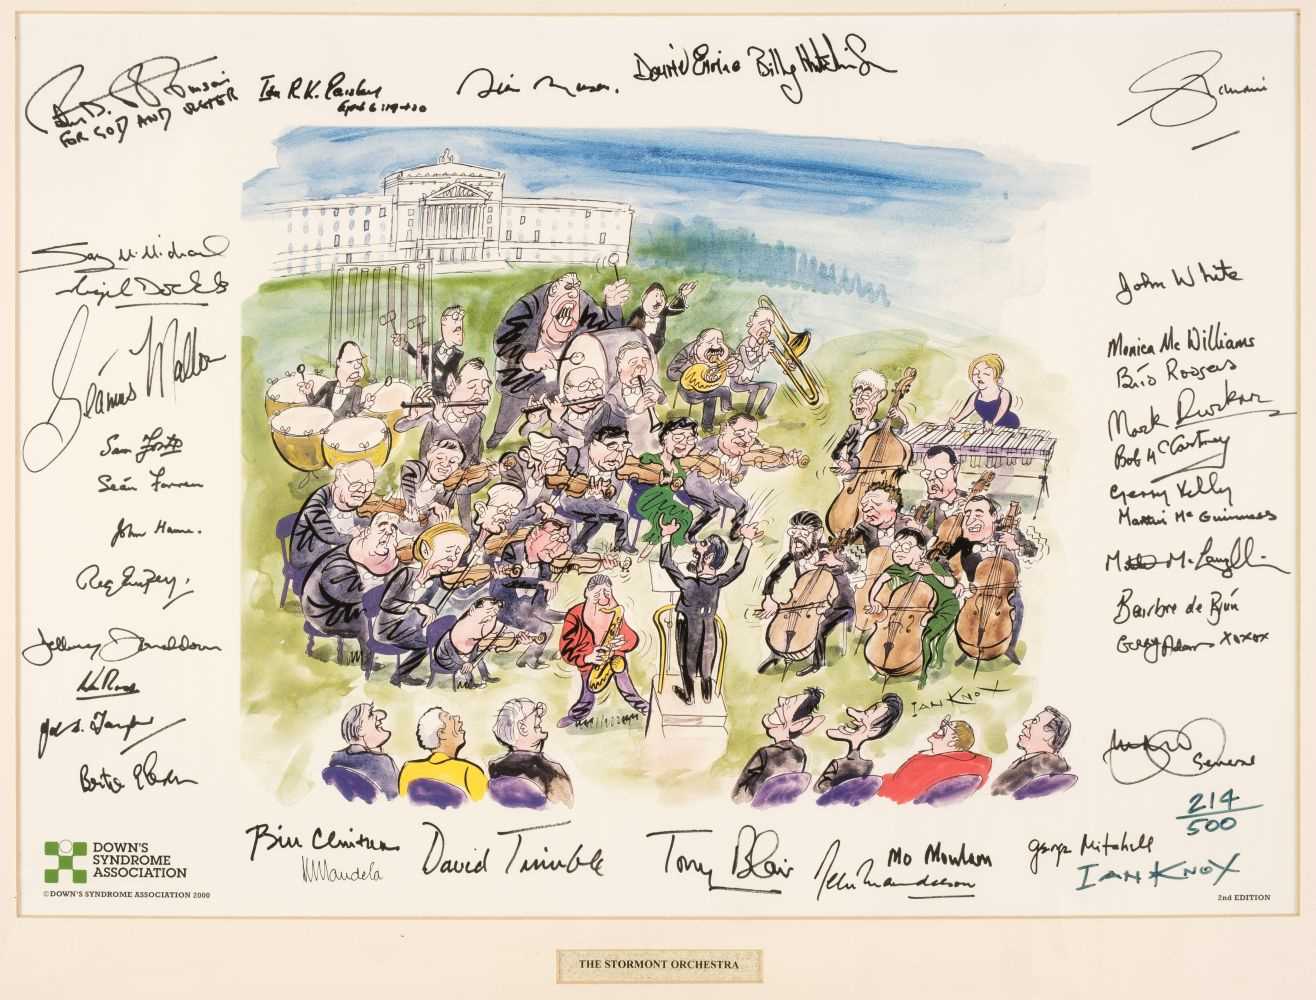 FOR GOD AND ULSTER
Ian R.K. Paisley
David Ervine
Billy Hutchinson
Seamus Mallon
Sam Foster
Seán Farren
John Hume.
Reg Empey,
Jeffrey Donaldson
John White
Monica McWilliams
Bríd Rodgers
Mark Durkan
Bob McCartney
Gerry Kelly
Martin McGuinness
Mitchel McLaughlin
Bairbre de Brún
Gerry Adams xoxox
IAN KNOX
Bill Clinton
N Mandela
David Trimble
Tony Blair
Mo Mowlam
Peter Mandelson
George Mitchell
214
500
IAN KNOX
DOWN'S
SYNDROME
ASSOCIATION
© DOWN'S SYNDROME ASSOCIATION 2000
2nd EDITION
THE STORMONT ORCHESTRA